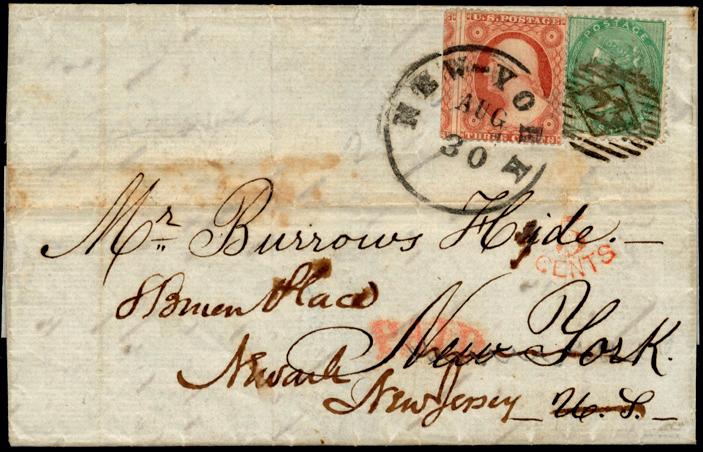 U.S. POSTAGE
THREE CENTS
POSTAGE
NEW-YORK
AUG
30
Mr. Burrows Hyde.
CENTS
8 Bruen Place
PAID
New York.
Newark
New Jersey
U. S.